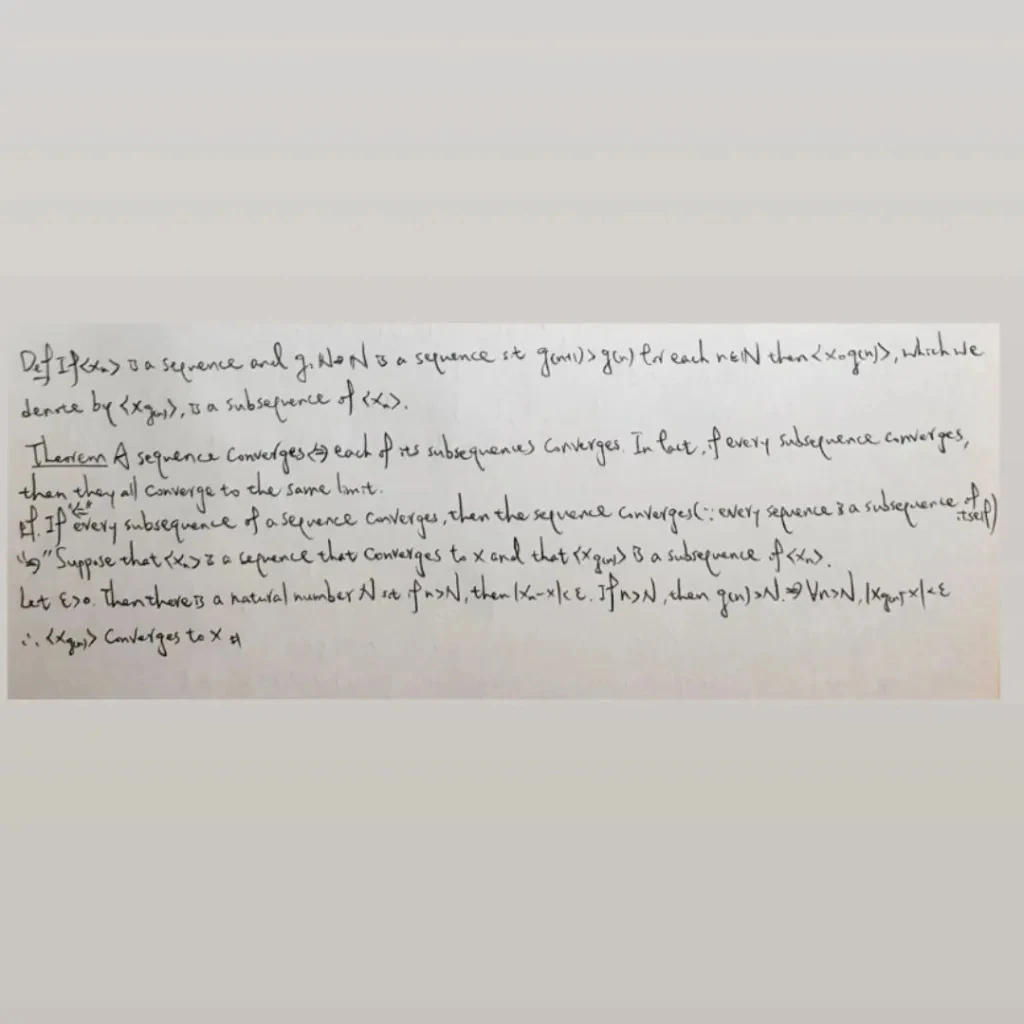 Def If <xₙ> is a sequence and g: N→N is a sequence st g(n+1)>g(n) for each n∈N then <x∘g(n)>, which we
denote by <x_g(n)>, is a subsequence of <xₙ>.
Theorem A sequence converges ⇔ each of its subsequences converges. In fact, if every subsequence converges,
then they all converge to the same limit.
pf. "⇐" If every subsequence of a sequence converges, then the sequence converges (∵ every sequence is a subsequence of itself)
"⇒" Suppose that <xₙ> is a sequence that converges to x and that <x_g(n)> is a subsequence of <xₙ>.
Let ε>0. Then there is a natural number N st if n>N, then |xₙ-x|<ε. If n>N, then g(n)>N. ⇒ ∀n>N, |x_g(n)-x|<ε
∴ <x_g(n)> converges to x #